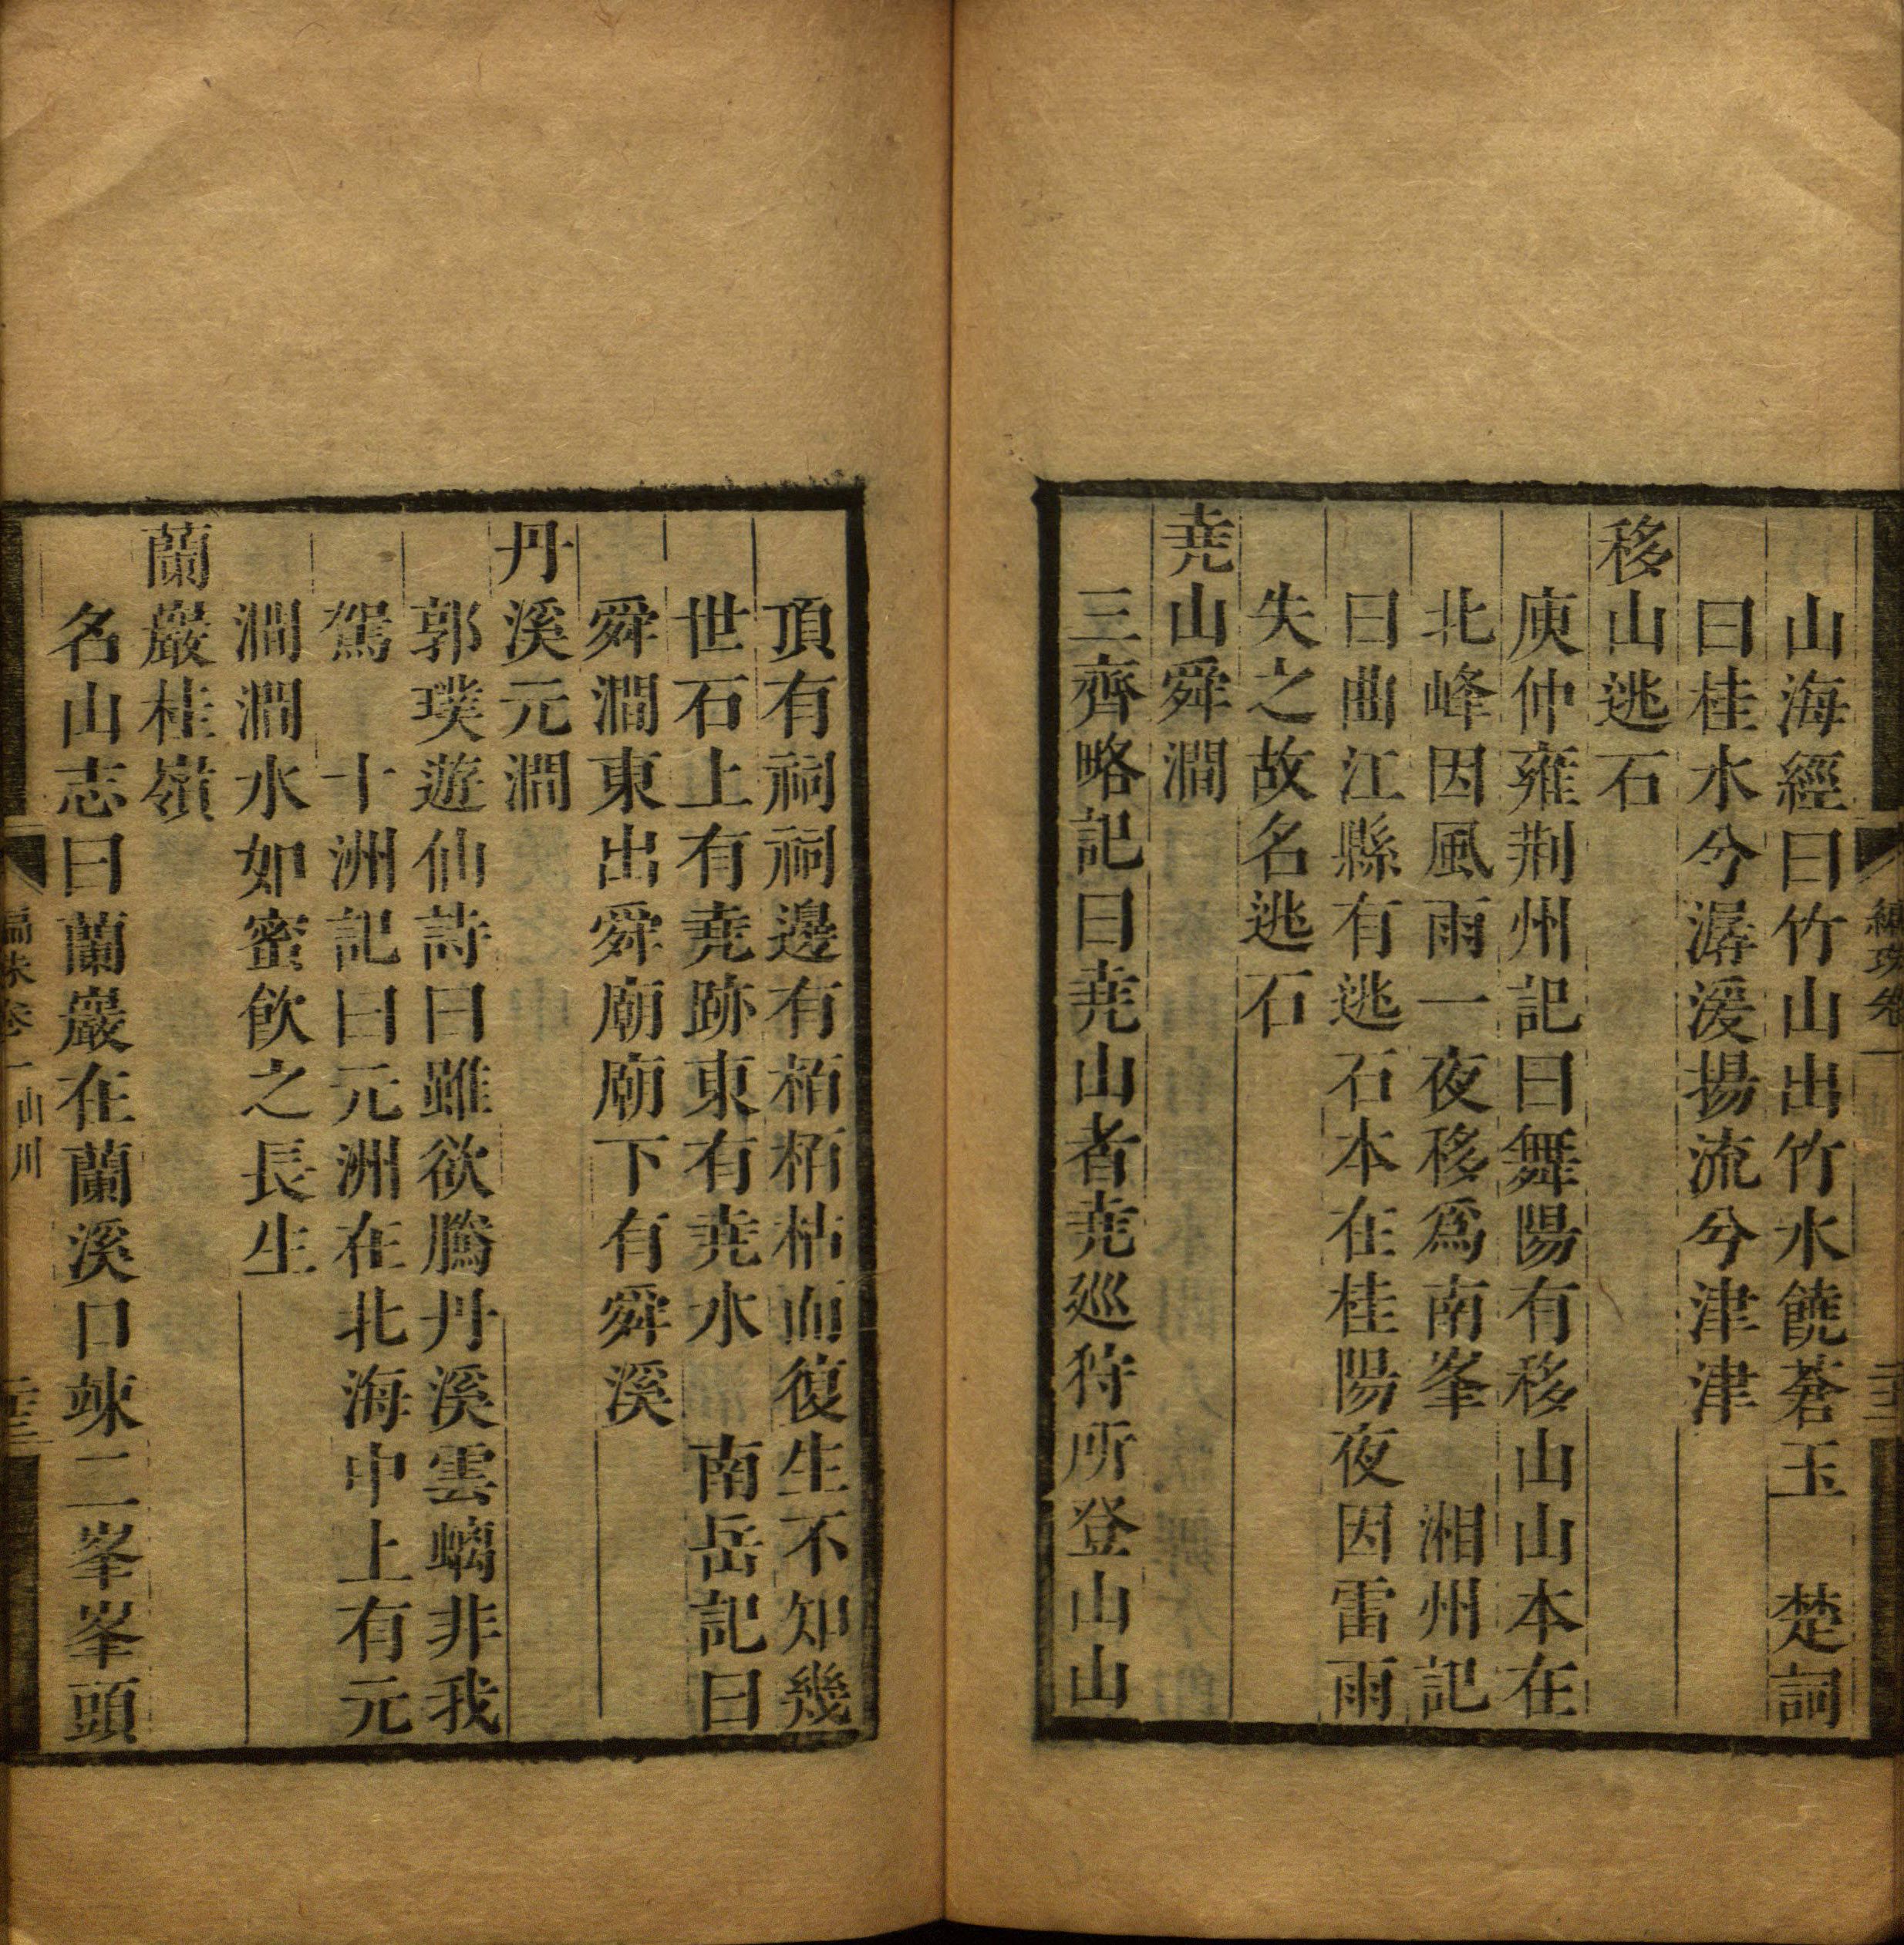 山海經曰竹山出竹水饒蒼玉　楚詞
曰桂水兮潺湲揚流兮津津
移山逃石
庾仲雍荆州記曰舞陽有移山山本在
北峰因風雨一夜移爲南峯　湘州記
曰曲江縣有逃石本在桂陽夜因雷雨
失之故名逃石
尭山舜澗
三齊略記曰尭山者尭巡狩所登山山
頂有祠祠邊有栢栢枯而復生不知幾
世石上有尭跡東有尭水　南岳記曰
舜澗東出舜廟廟下有舜溪
丹溪元澗
郭璞遊仙詩曰雖欲騰丹溪雲螭非我
駕　十洲記曰元洲在北海中上有元
澗澗水如蜜飮之長生
蘭巖桂嶺
名山志曰蘭巖在蘭溪口竦二峯峯頭
編珠卷一
山川